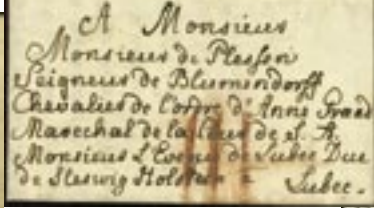 A Monsieur
Monsieur de Plessen
Seigneur de Blumendorff
Chevalier de l'ordre d'Anne Grand
Marechal de la Cour de S. A.
Monsieur L'Eveque de Lubec Duc
de Sleswig Holstein à
Lubec.